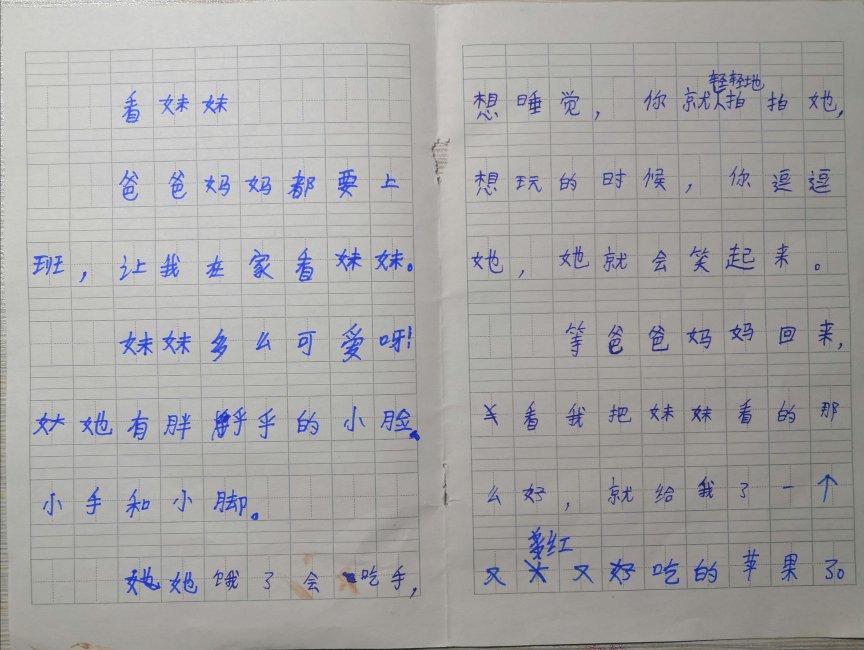 看妹妹
爸爸妈妈都要上
班，让我在家看妹妹。
妹妹多么可爱呀!
她有胖乎乎的小脸、
小手和小脚。
她饿了会吃手，
想睡觉，你就轻轻地拍拍她，
想玩的时候，你逗逗
她，她就会笑起来。
等爸爸妈妈回来，
看我把妹妹看的那
么好，就给我了一个
又红又好吃的苹果了。